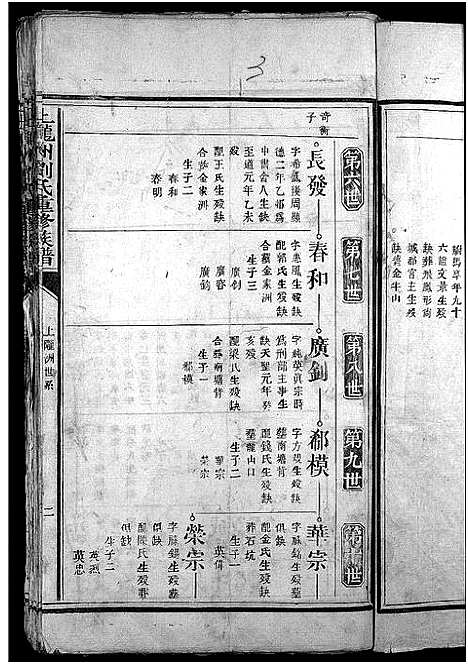 3
駙馬享年九十
六諡文景生歿
缺葬飛鳳形尚
城都宮主生歿
缺葬金牛山
第六世
第七世
第八世
第九世
第十世
奇衡
子
長發
字希
德二年乙
中世舍人生缺
至道元年乙未
歿
配王氏生歿缺
合葬金家洲
生子二
春和
春明
春和
字惠風生歿缺
配郭氏生歿缺
合葬金家洲
生子三
廣劍
廣鈞
廣劍
字純英真宗時
為刑部主事生
缺天聖元年癸
亥歿
配梁氏生歿缺
合葬南塘背
生子一
郗模
郗模
字方生歿缺
葬南塘背
配錢氏生歿缺
葬龍山口
生子二
華宗
榮宗
華宗
字脈銘生歿葬
俱缺
配金氏生歿缺
葬石坑
生子一
英偉
榮宗
字脈錫生歿葬
俱缺
配陳氏生歿葬
俱缺
生子二
英烈
英忠
上龍洲劉氏重修族譜
上隴洲世系
二